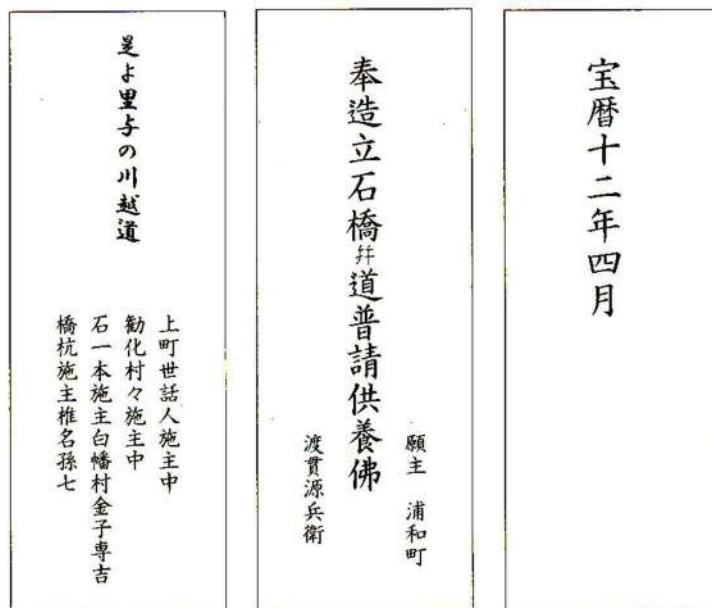 宝暦十二年四月
奉造立石橋幷道普請供養佛
願主　浦和町
渡貫源兵衛
是よ里与の川越道
上町世話人施主中
勧化村々施主中
石一本施主白幡村金子専吉
橋杭施主椎名孫七